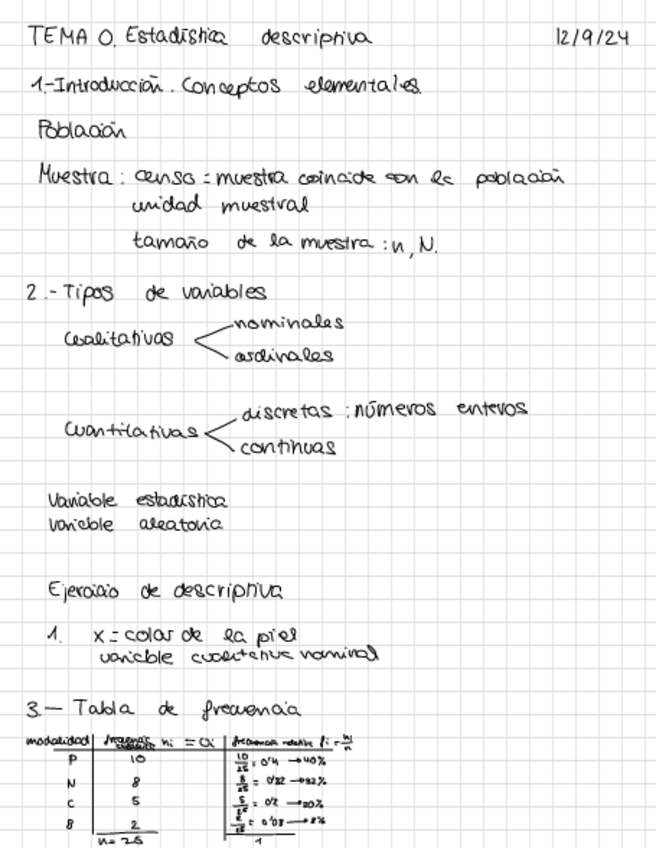 TEMA 0. Estadística descriptiva 12/9/24
1.-Introducción. Conceptos elementales.
Población
Muestra : censo = muestra coincide con la población
unidad muestral
tamaño de la muestra : n, N.
2.- Tipos de variables
Cualitativas
nominales
ordinales
Cuantitativas
discretas : números enteros
continuas
Variable estadística
variable aleatoria
Ejercicio de descriptiva
1. x = color de la piel
variable cualitativa nominal
3.- Tabla de frecuencia
modalidad frecuencia ni = frecuencia relativa fi = ni/n
P 10 10/25 = 0'4 → 40%
N 8 8/25 = 0'32 → 32%
C 5 5/25 = 0'2 → 20%
B 2 2/25 = 0'08 → 8%
n = 25 1